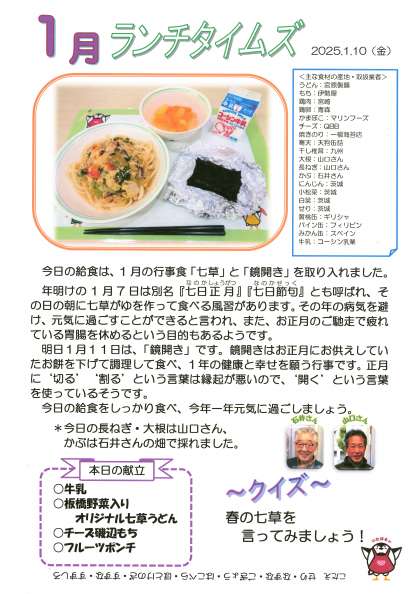 1月 ランチタイムズ
2025.1.10（金）
＜主な食材の産地・取扱業者＞
うどん：宮原製麺
もち：伊勢屋
鶏肉：宮崎
鶏卵：青森
かまぼこ：マリンフーズ
チーズ：QBB
焼きのり：一福海苔店
寒天：天狗缶詰
干し椎茸：九州
大根：山口さん
長ねぎ：山口さん
かぶ：石井さん
にんじん：茨城
小松菜：茨城
白菜：茨城
せり：茨城
黄桃缶：ギリシャ
パイン缶：フィリピン
みかん缶：スペイン
牛乳：コーシン乳業
今日の給食は、１月の行事食「七草」と「鏡開き」を取り入れました。
年明けの１月７日は別名『七日正月』『七日節句』とも呼ばれ、そ
の日の朝に七草がゆを作って食べる風習があります。その年の病気を避
け、元気に過ごすことができると言われ、また、お正月のご馳走で疲れ
ている胃腸を休めるという目的もあるようです。
明日１月１１日は、「鏡開き」です。鏡開きはお正月にお供えしてい
たお餅を下げて調理して食べ、１年の健康と幸せを願う行事です。正月
に‘切る’‘割る’という言葉は縁起が悪いので、‘開く’という言葉
を使っているそうです。
今日の給食をしっかり食べ、今年一年元気に過ごしましょう。
＊今日の長ねぎ・大根は山口さん、
かぶは石井さんの畑で採れました。
石井さん
山口さん
本日の献立
○牛乳
○板橋野菜入り
オリジナル七草うどん
○チーズ磯辺もち
○フルーツポンチ
～クイズ～
春の七草を
言ってみましょう！
こたえ：せり・なずな・ごぎょう・はこべら・ほとけのざ・すずな・すずしろ